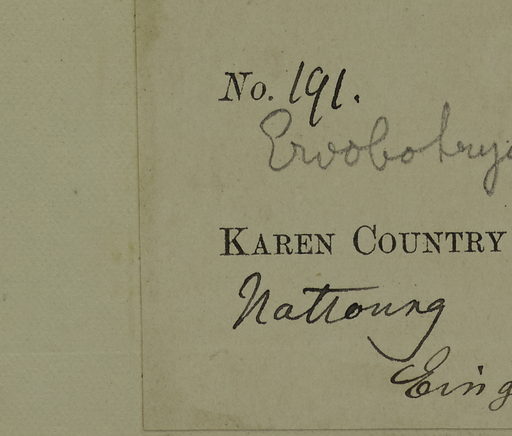 No. 191.
Ervobotrya
KAREN COUNTRY
Nattoung
Eing